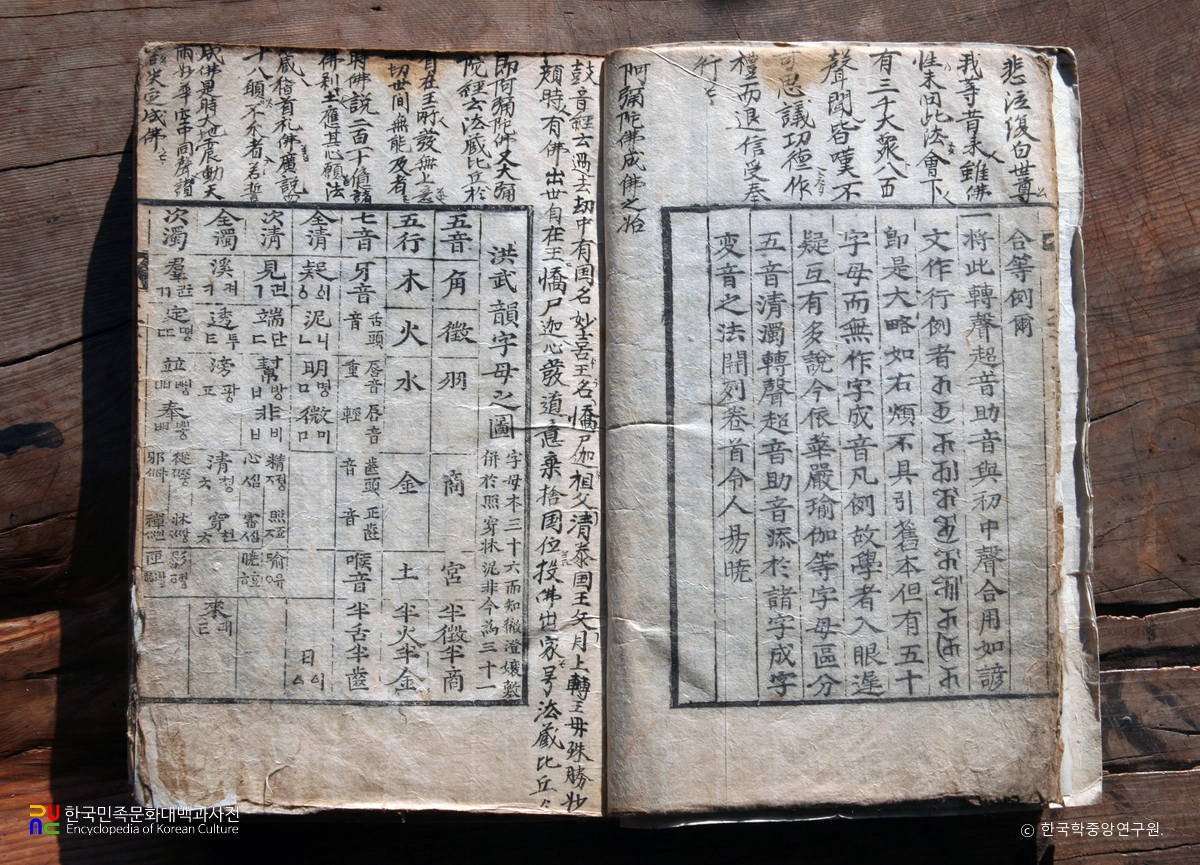 悲泣復白世尊
我等昔來雖佛
性未回此法會下
有三千大衆八百
聲聞皆嘆不
可思議功德作
禮而退信受奉
行
阿彌陀佛成佛之始
合等例爾
一將此轉聲超音助音與初中聲合用如諺
文作行例者
即是大略如右煩不具引舊本但有五十
字母而無作字成音凡例故學者入眼遲
疑互有多說今依華嚴瑜伽等字母區分
五音清濁轉聲超音助音添於諸字成字
変音之法開列卷首令人易曉
鼓音經云過去劫中有国名妙喜王名憍尸迦祖父清泰国王父月上轉王母殊勝妙
顔時有佛出世自在王憍尸迦心發道意棄捨国位投佛出家号法藏比丘
即阿彌陀佛又大彌
陀經云法藏比丘於
自在王所發無上意
一切世間無能及者
時佛說二百十億諸
佛刹土應其心願法
藏稽首礼佛廣說四
十八願不求者若誓
成佛是時大地震動天
雨妙華空中同聲讚
決定成佛
洪武韻字母之圖
字母本三十六而知徹澄孃敷
併於照穿牀泥非今為三十一
五音 角 徵 羽 商 宮 半徵半商
五行 木 火 水 金 土 半火半金
七音 牙音 舌頭音 唇音重 唇音輕 齒頭音 正齒音 喉音 半舌半齒
全清 疑 泥니ㄴ 明명ㅁ 微미ㅁ 日
次清 見견ㄱ 端단ㄷ 幫방ㅂ 非비ㅂ 精정 心심 照 審심 曉 喩유
全濁 溪켜ㅋ 透투ㅌ 滂팡ㅍ 清청ㅊ 穿천ㅊ 來래ㄹ
次濁 羣ㄲ 定ㄸ 並ㅃ 奉ㅃ 從 邪 牀 禪 匣
한국민족문화대백과사전
Encyclopedia of Korean Culture
© 한국학중앙연구원.